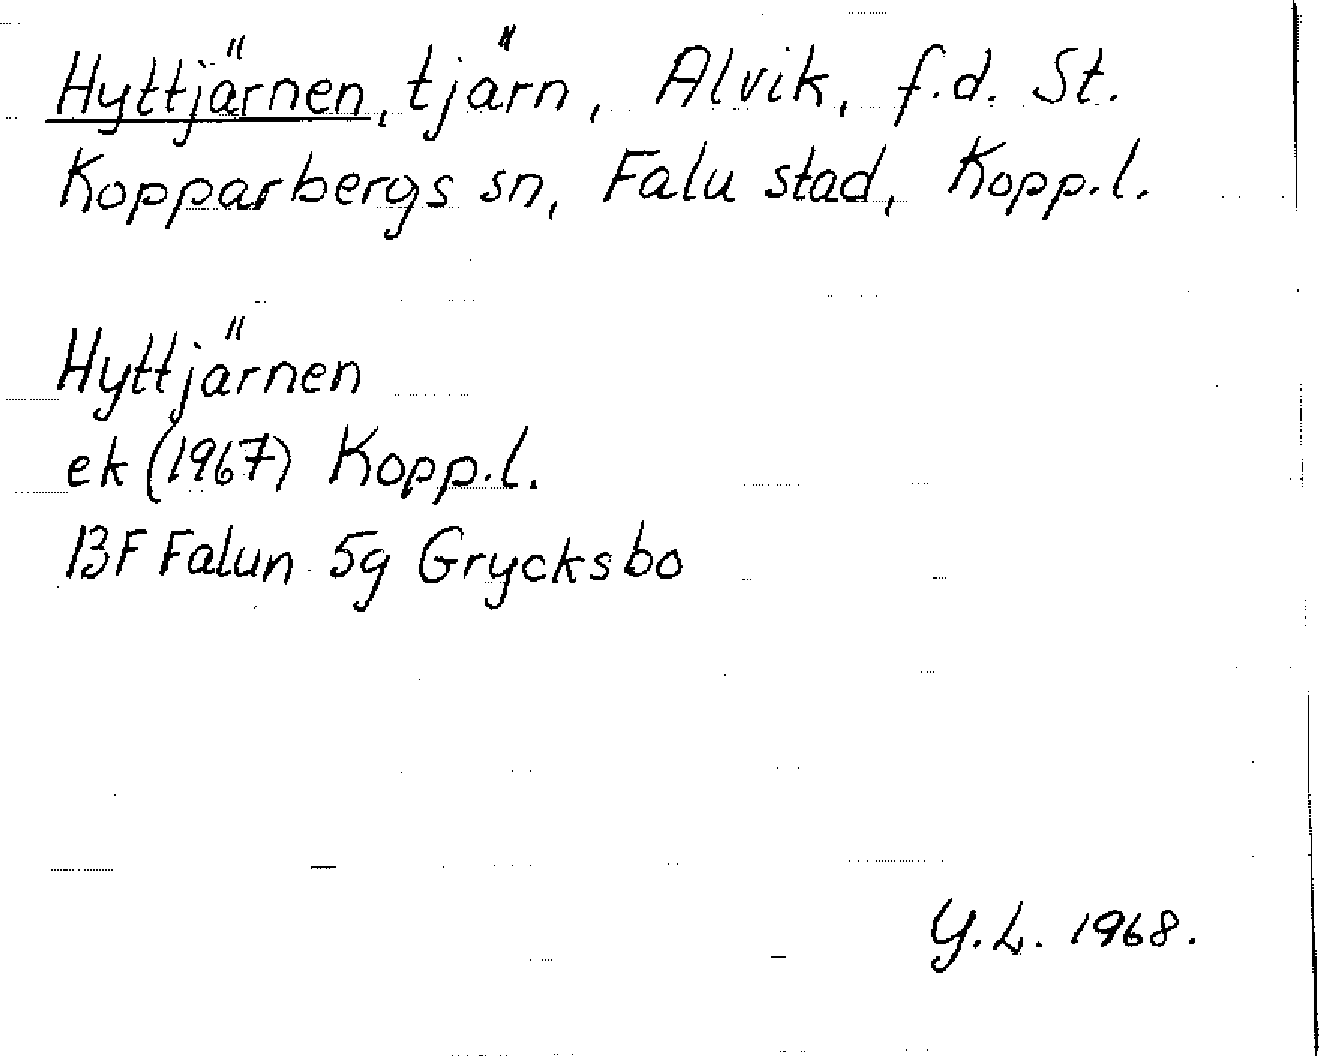 Hyttjärnen, tjärn, Alvik, f.d. St.
Kopparbergs sn, Falu stad, Kopp.l.
Hyttjärnen
ek (1967) Kopp.l.
13F Falun 5g Grycksbo
Y.L. 1968.